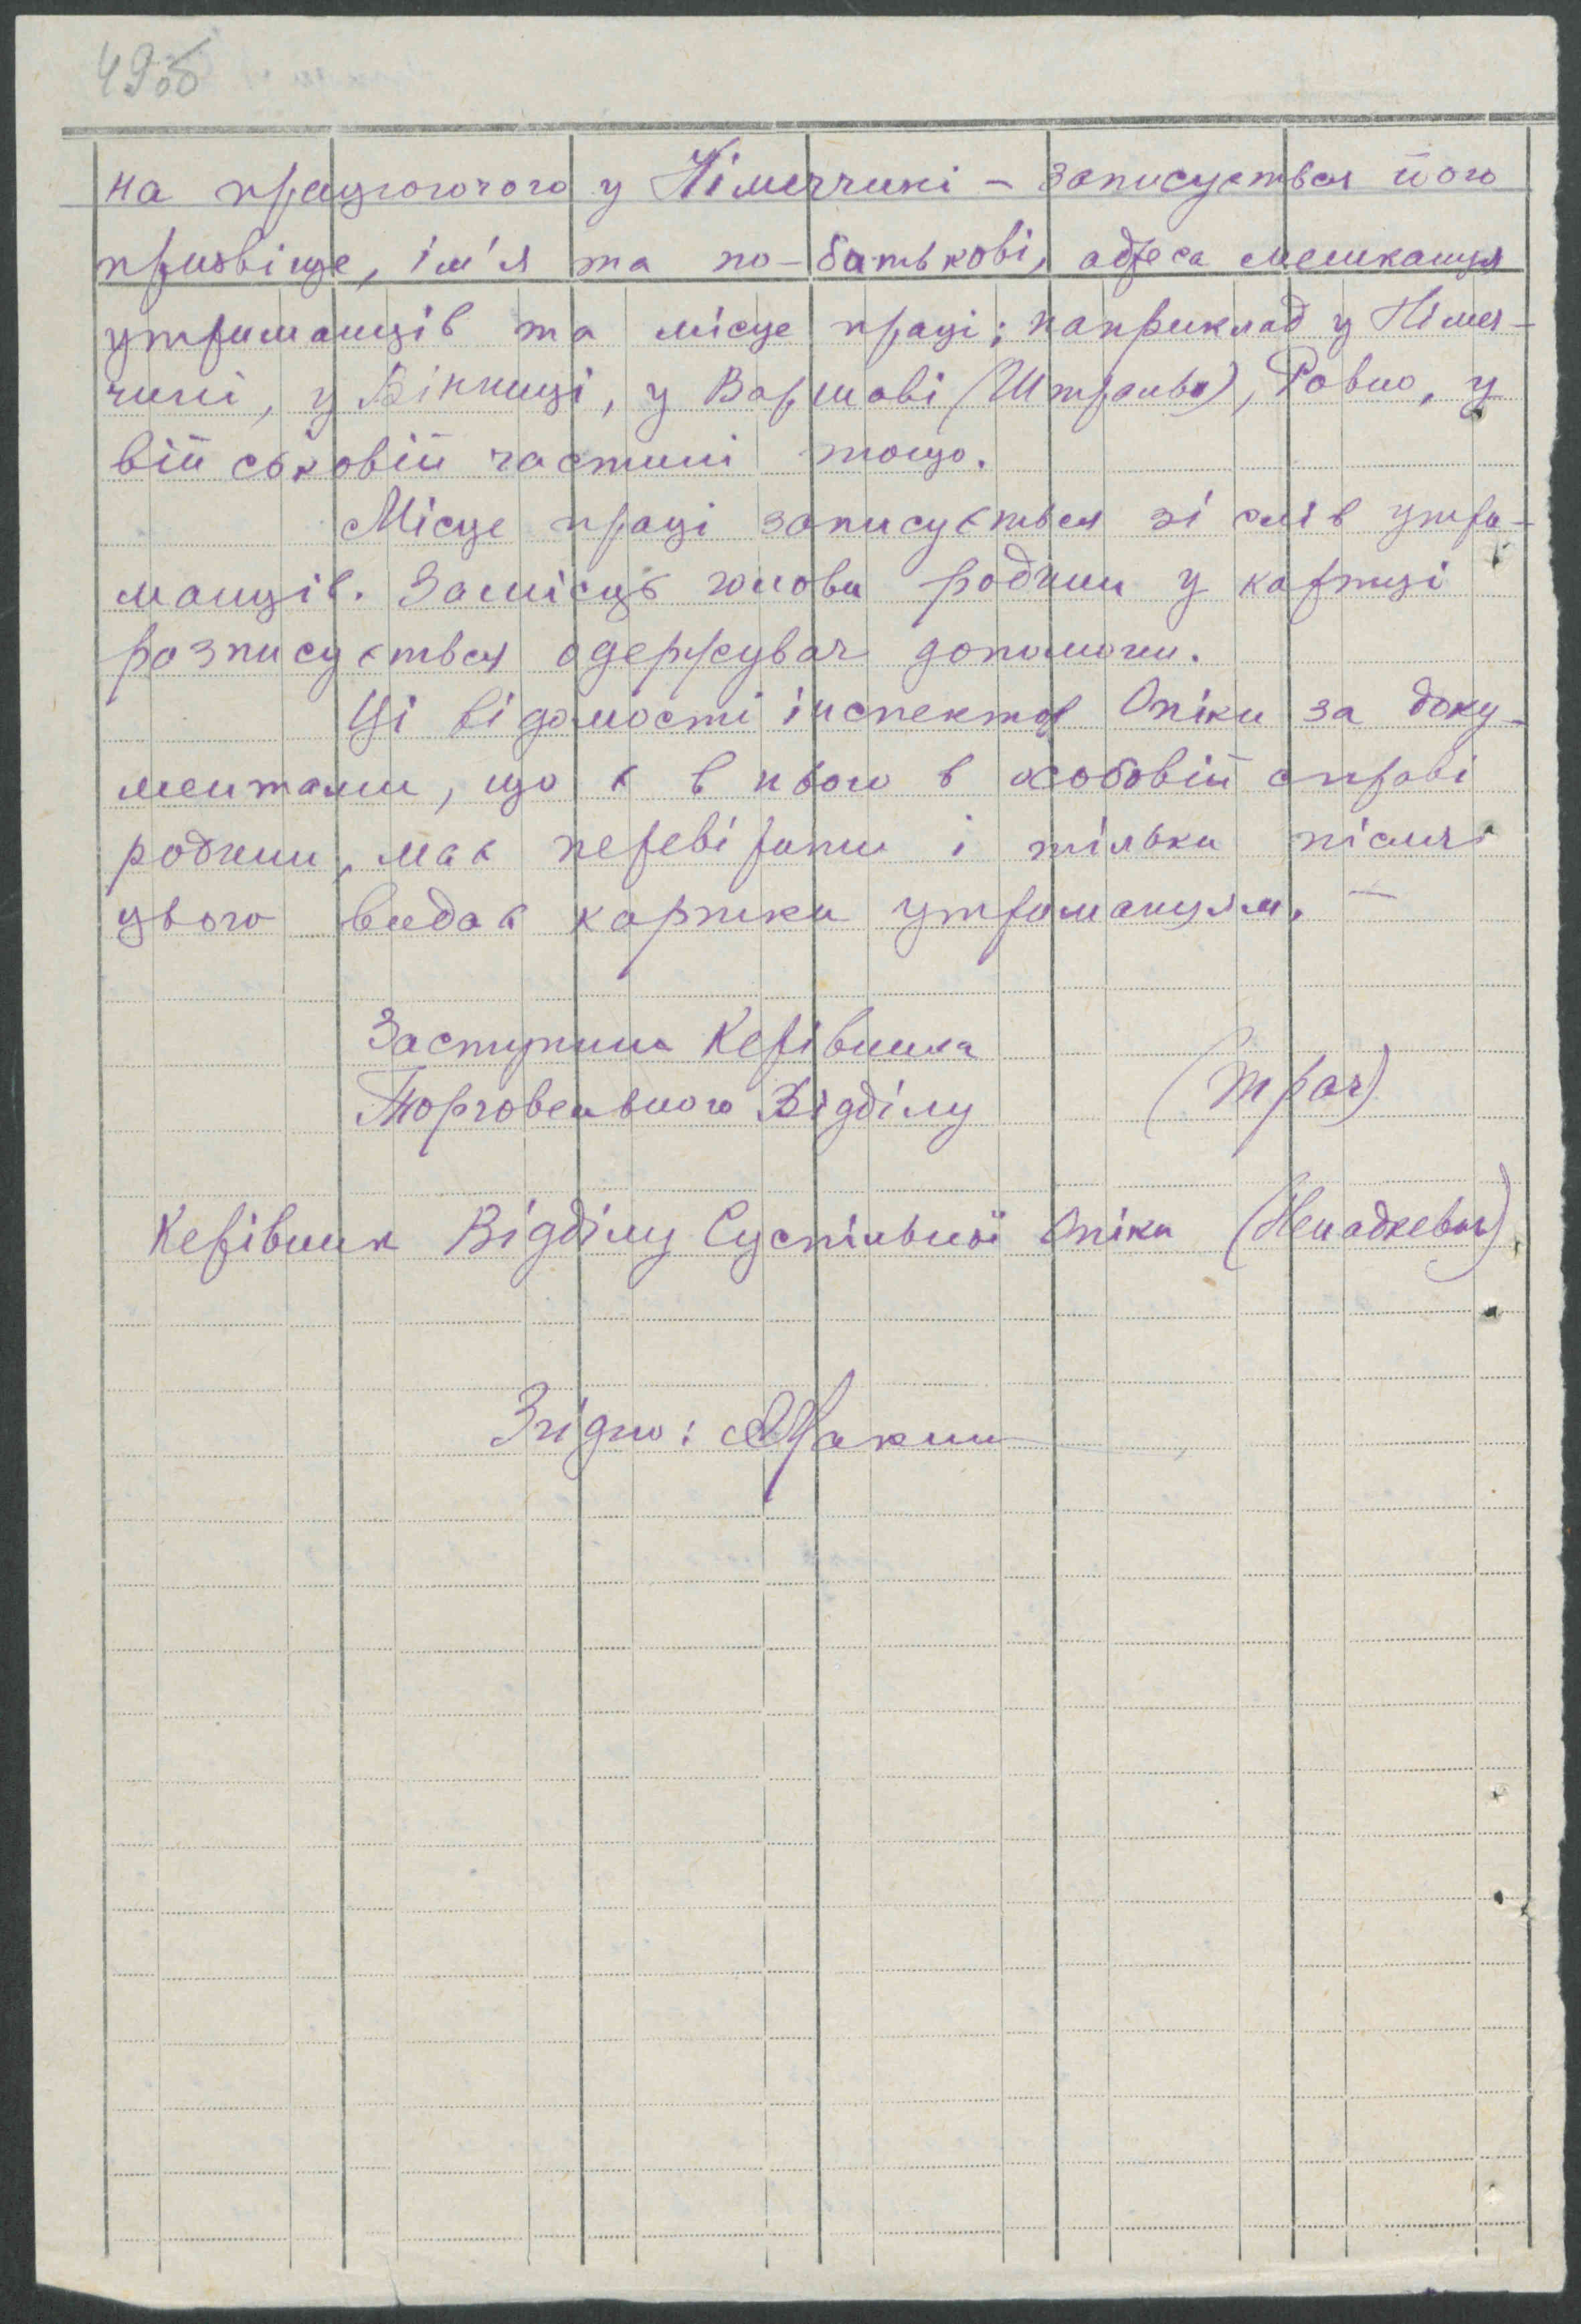 49об
на працюючого у Німеччині – записується його
призвіще, ім'я та по-батькові, адреса мешкання
утриманців та місце праці; наприклад у Німеч-
чині, у Вінниці, у Варшаві (Штранва), Ровно, у
військовій частині тощо.
Місце праці записується зі слів утри-
манців. Замісць голови родини у картці
розписується одержувач допомоги.
Ці відомості інспектор Опіки за доку-
ментами, що є в нього в особовій справі
родини, має перевірити і тільки після
цього видає картки утриманцям. –
Заступник Керівника
Торговельного Відділу (Трач)
Керівник Відділу Суспільної Опіки (Ненадкевич)
Згідно: